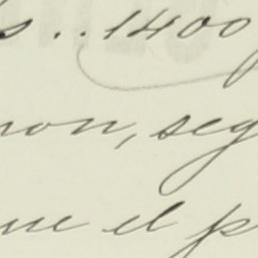 s . . 1400
non, seg
ue el p